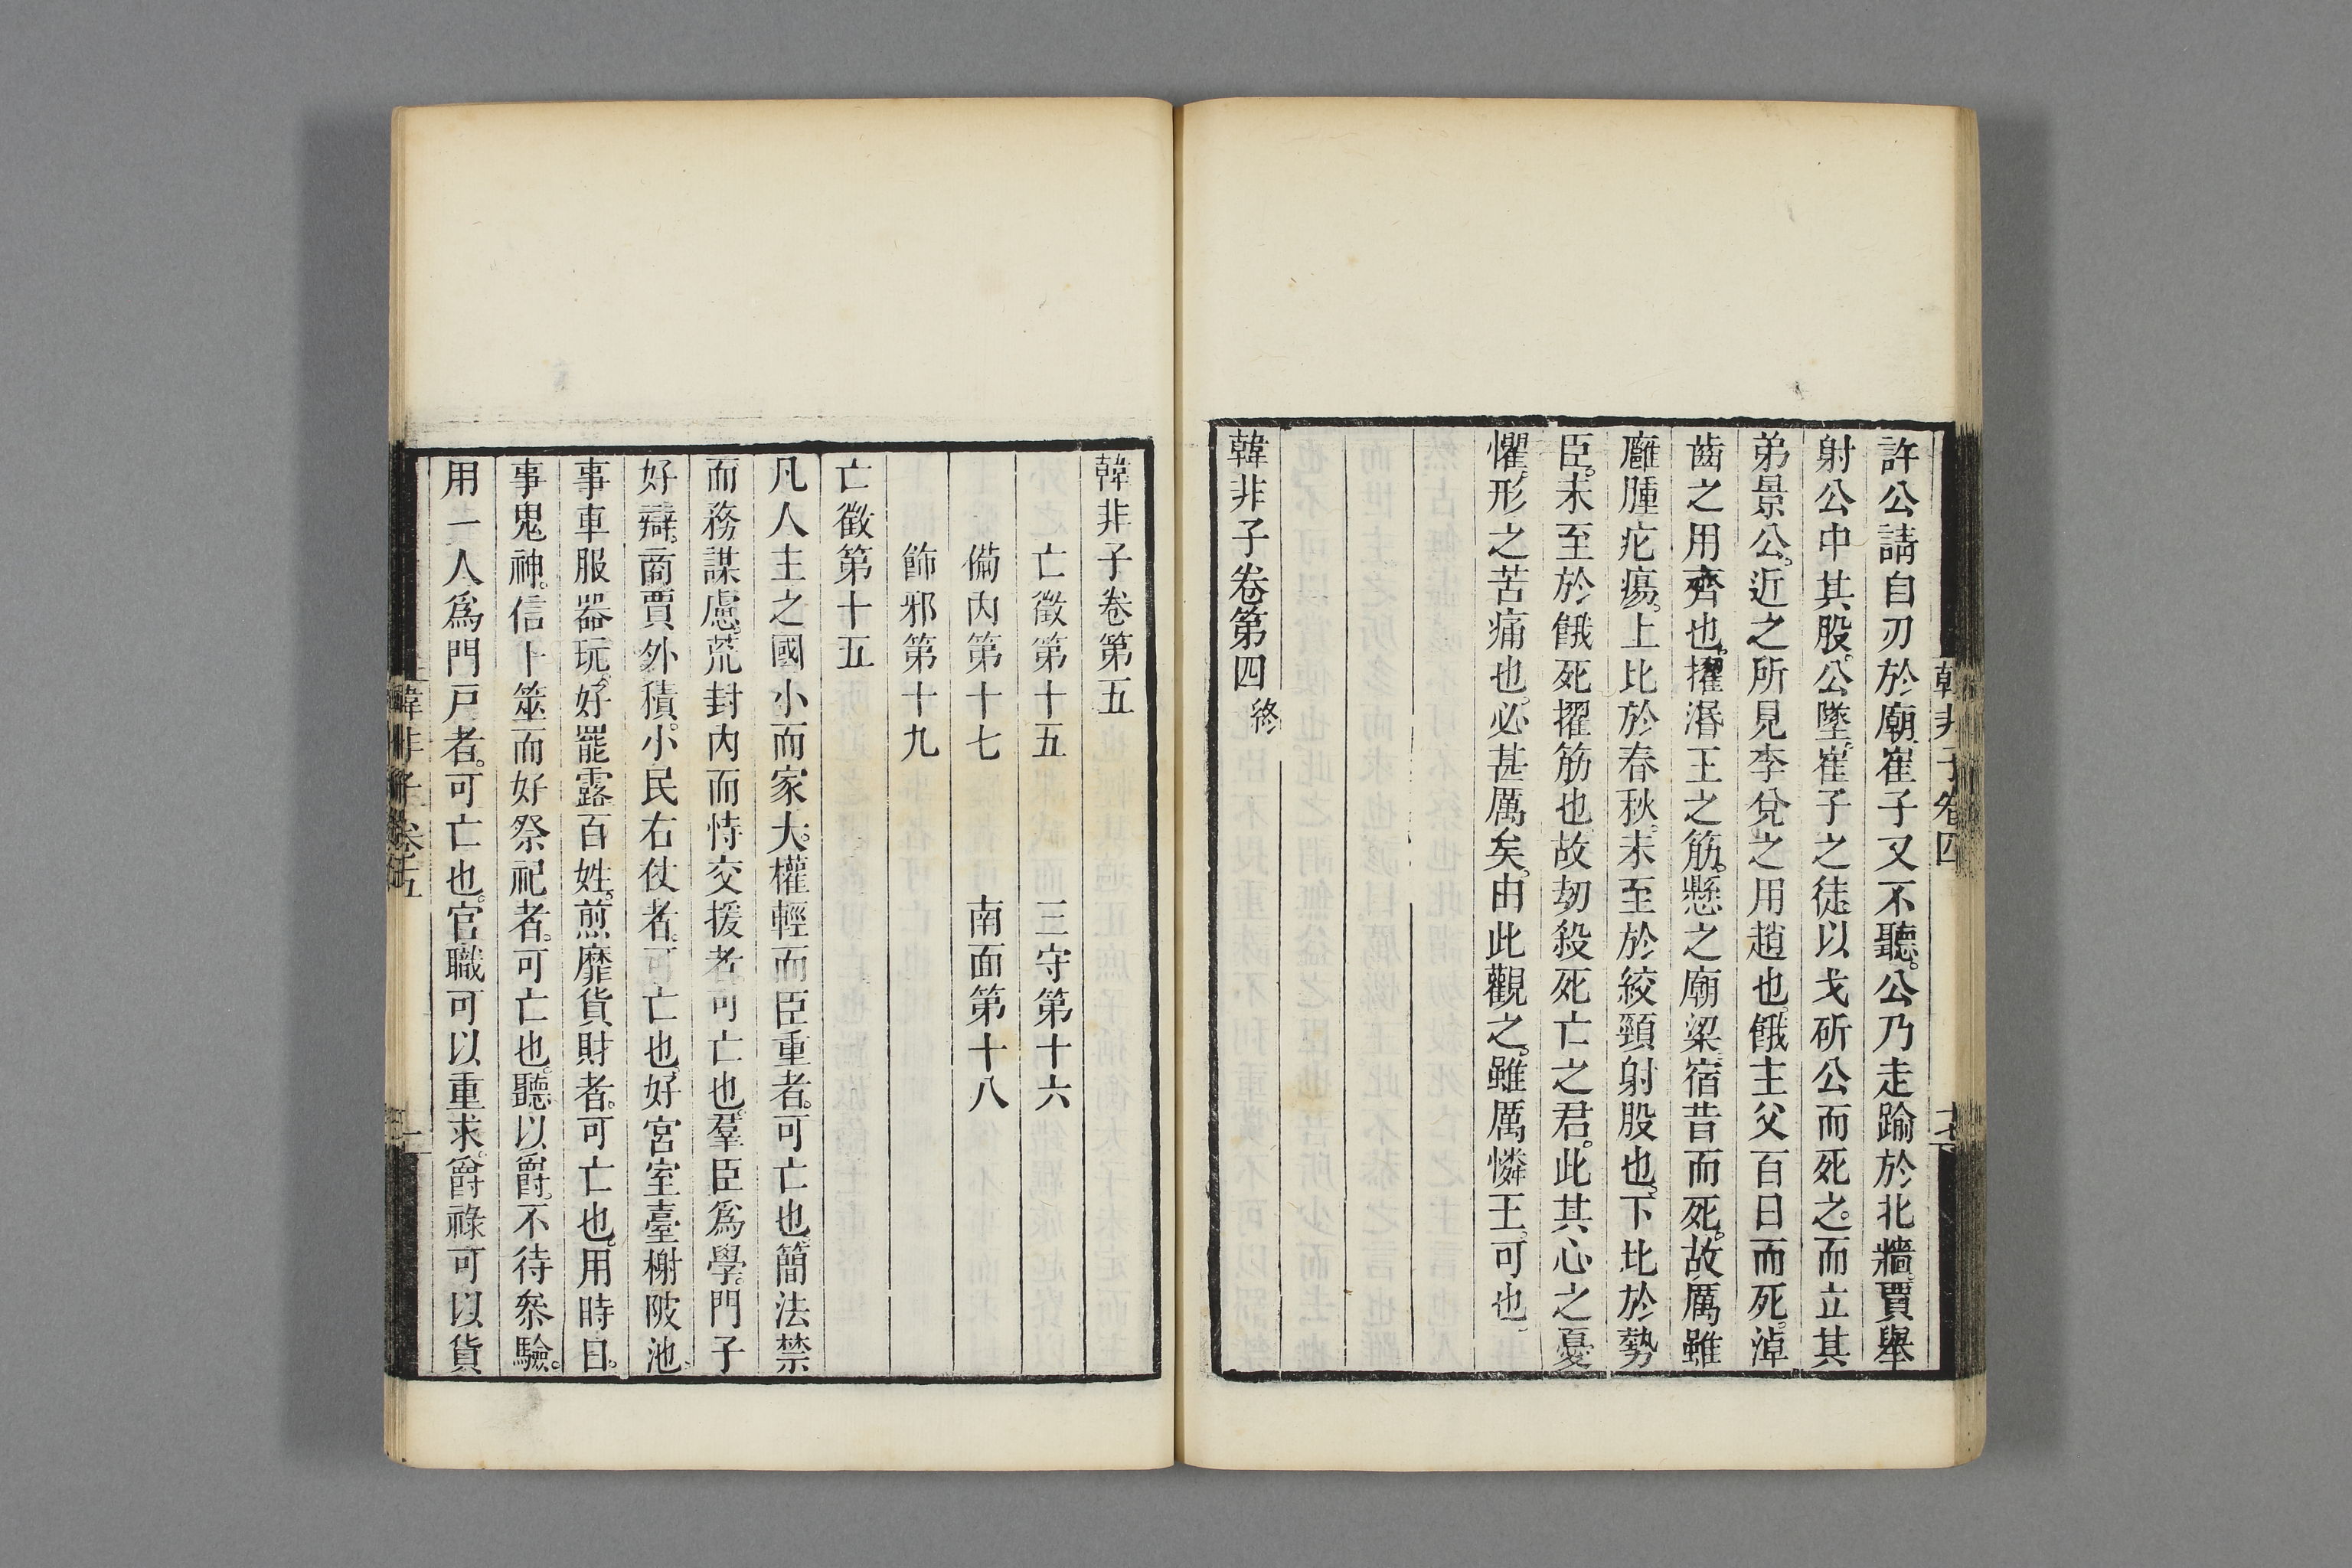 韓非子卷四
十七
許公請自刃於廟崔子又不聽。公乃走踰於北牆賈舉
射公中其股。公墜。崔子之徒以戈斫公而死之。而立其
弟景公。近之所見李兌之用趙也。餓主父百日而死。淖
齒之用齊也。擢湣王之筋。懸之廟梁宿昔而死。故厲雖
廱腫疕瘍。上比於春秋。未至於絞頸射股也。下比於勢
臣。未至於餓死擢筋也故刼殺死亡之君。此其心之憂
懼。形之苦痛也。必甚厲矣。由此觀之。雖厲憐王。可也。
韓非子卷第四 終
韓非子卷第五
亡徵第十五 三守第十六
備內第十七 南面第十八
飾邪第十九
亡徵第十五
凡人主之國小而家大。權輕而臣重者。可亡也。簡法禁
而務謀慮。荒封內而恃交援者。可亡也。羣臣爲學。門子
好辯。商賈外積。小民右仗者。可亡也。好宮室臺榭陂池。
事車服器玩。好罷露百姓。煎靡貨財者。可亡也。用時日。
事鬼神。信卜筮而好祭祀者。可亡也。聽以爵。不待參驗。
用一人爲門戸者。可亡也。官職可以重求。爵祿可以貨
韓非子卷五
一